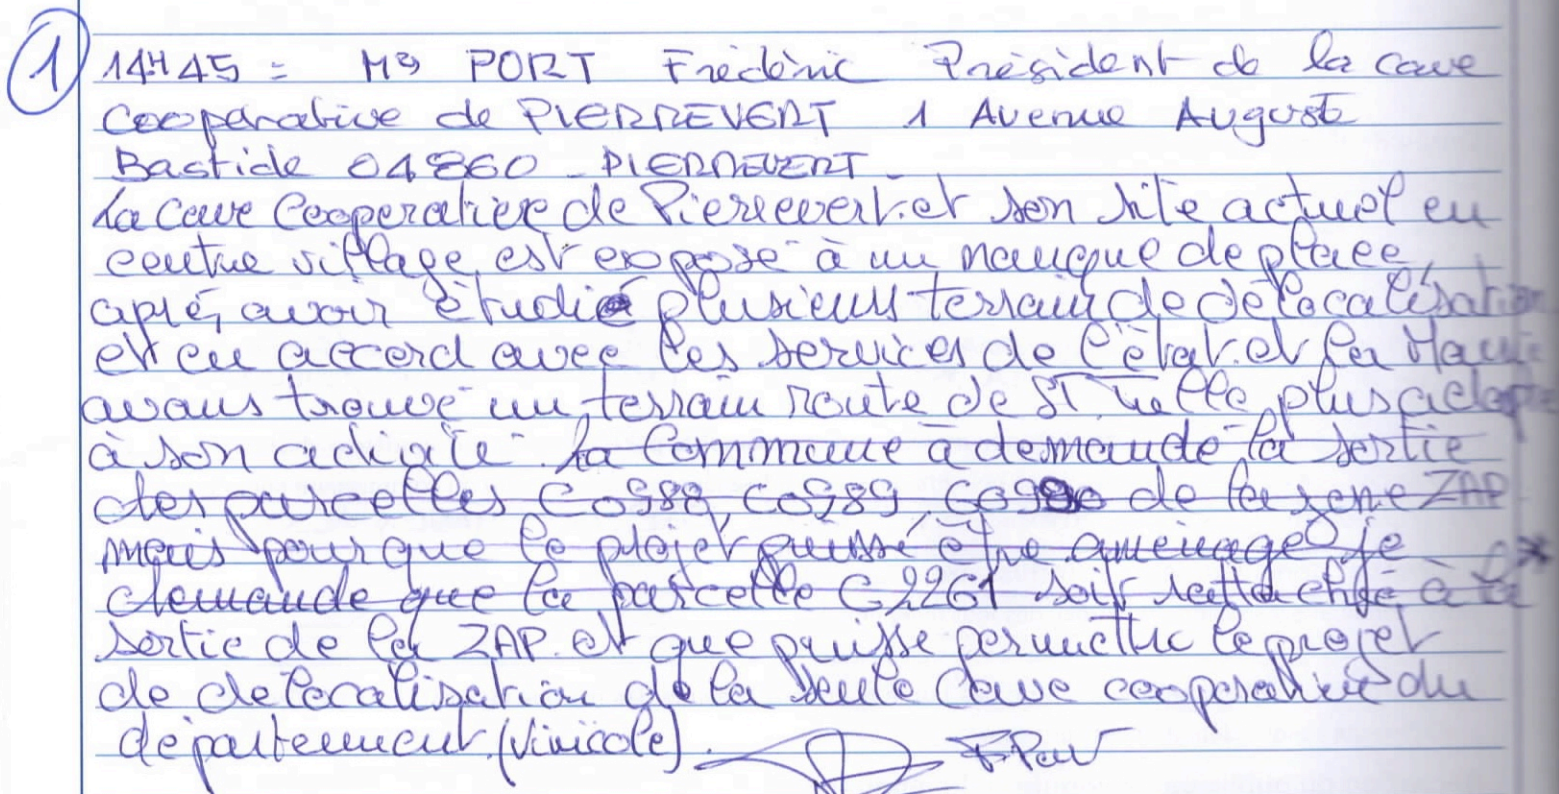 1
14H45 = Mr PORT Frédéric Président de la cave
cooperative de PIERREVERT 1 Avenue Auguste
Bastide 04860 - PIERREVERT -
La Cave Cooperative de Pierrevert et son site actuel en
centre village, est exposé à un manque de place,
après avoir étudié plusieurs terrain de délocalisation
et en accord avec les services de l'état et la Mairie
avons trouvé un terrain route de ST Tulle, plus adapté
à son activité. La Commune à demandé la sortie
des parcelles C0988, C0989, C0990 de la zone ZAP
mais pour que le projet puisse être aménagé je
demande que la parcelle C2261 soit rattaché à la *
sortie de la ZAP. et que puisse permettre le projet
de delocalisation de la seule Cave cooperative du
département (vinicole).